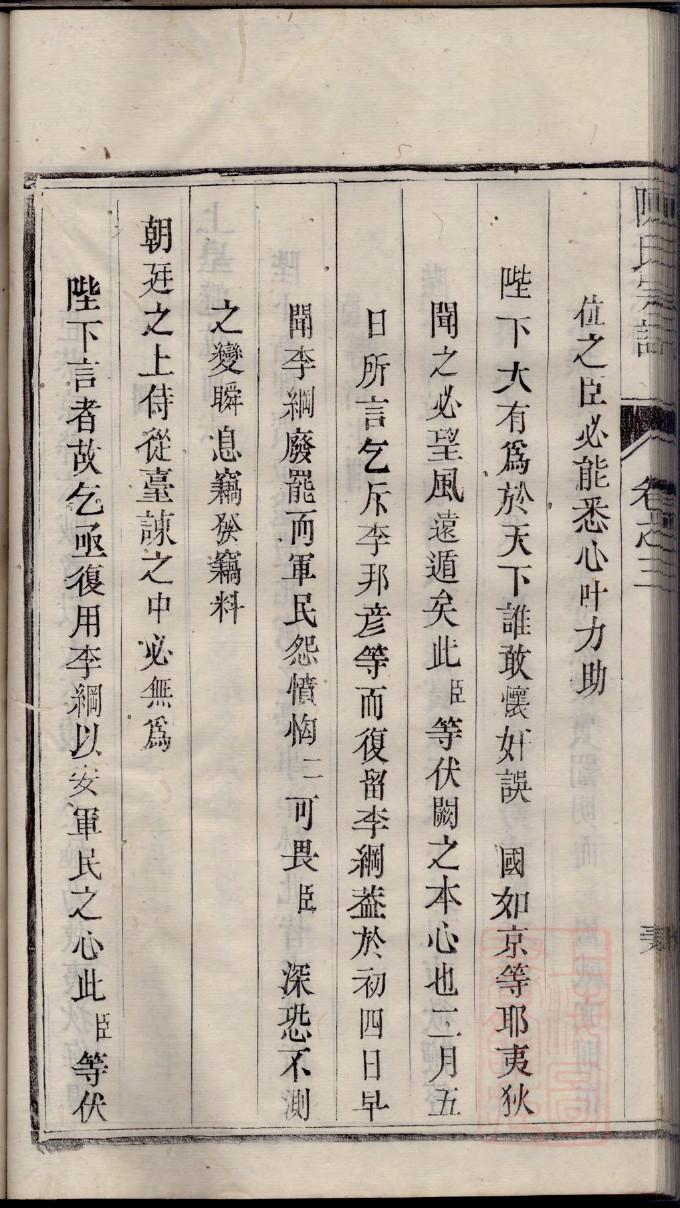 陳氏宗譜 卷之三
位之臣必能悉心叶力助
陛下大有爲於天下誰敢懷奸誤 國如京等耶夷狄
聞之必望風遠遁矣此臣等伏闕之本心也二月五
日所言乞斥李邦彦等而復留李綱葢於初四日早
聞李綱廢罷而軍民怨憤恟二可畏臣 深恐不測
之變瞬息竊發竊料
朝廷之上侍從臺諫之中必無爲
陛下言者故乞亟復用李綱以安軍民之心此臣等伏